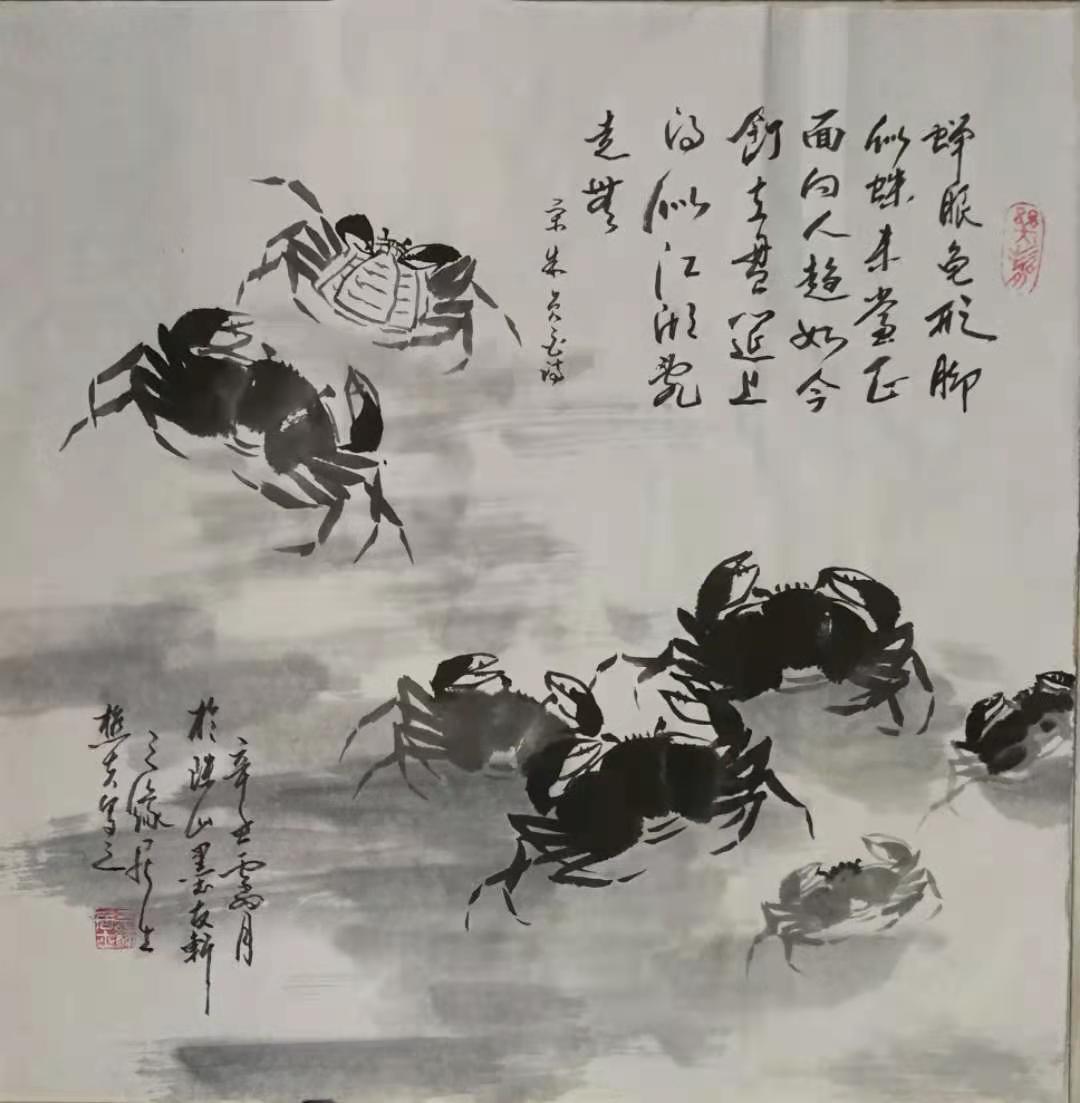 蝉眼龟形脚
似蛛未尝正
面向人趋如今
飣在盘筵上
得似江湖乱
走無
宋朱贞白诗
辛丑霜月
於陇山墨友轩
之缘 生
樵夫写之